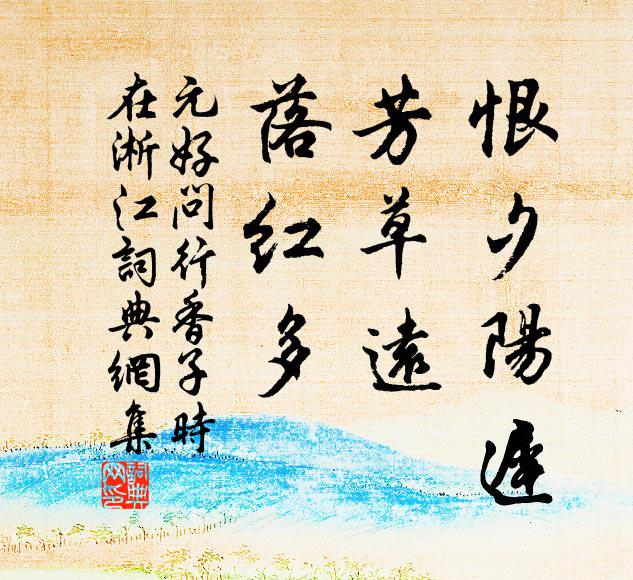 恨夕陽遲
芳草遠
落紅多
元好問行香子時
在淅江詞典網集